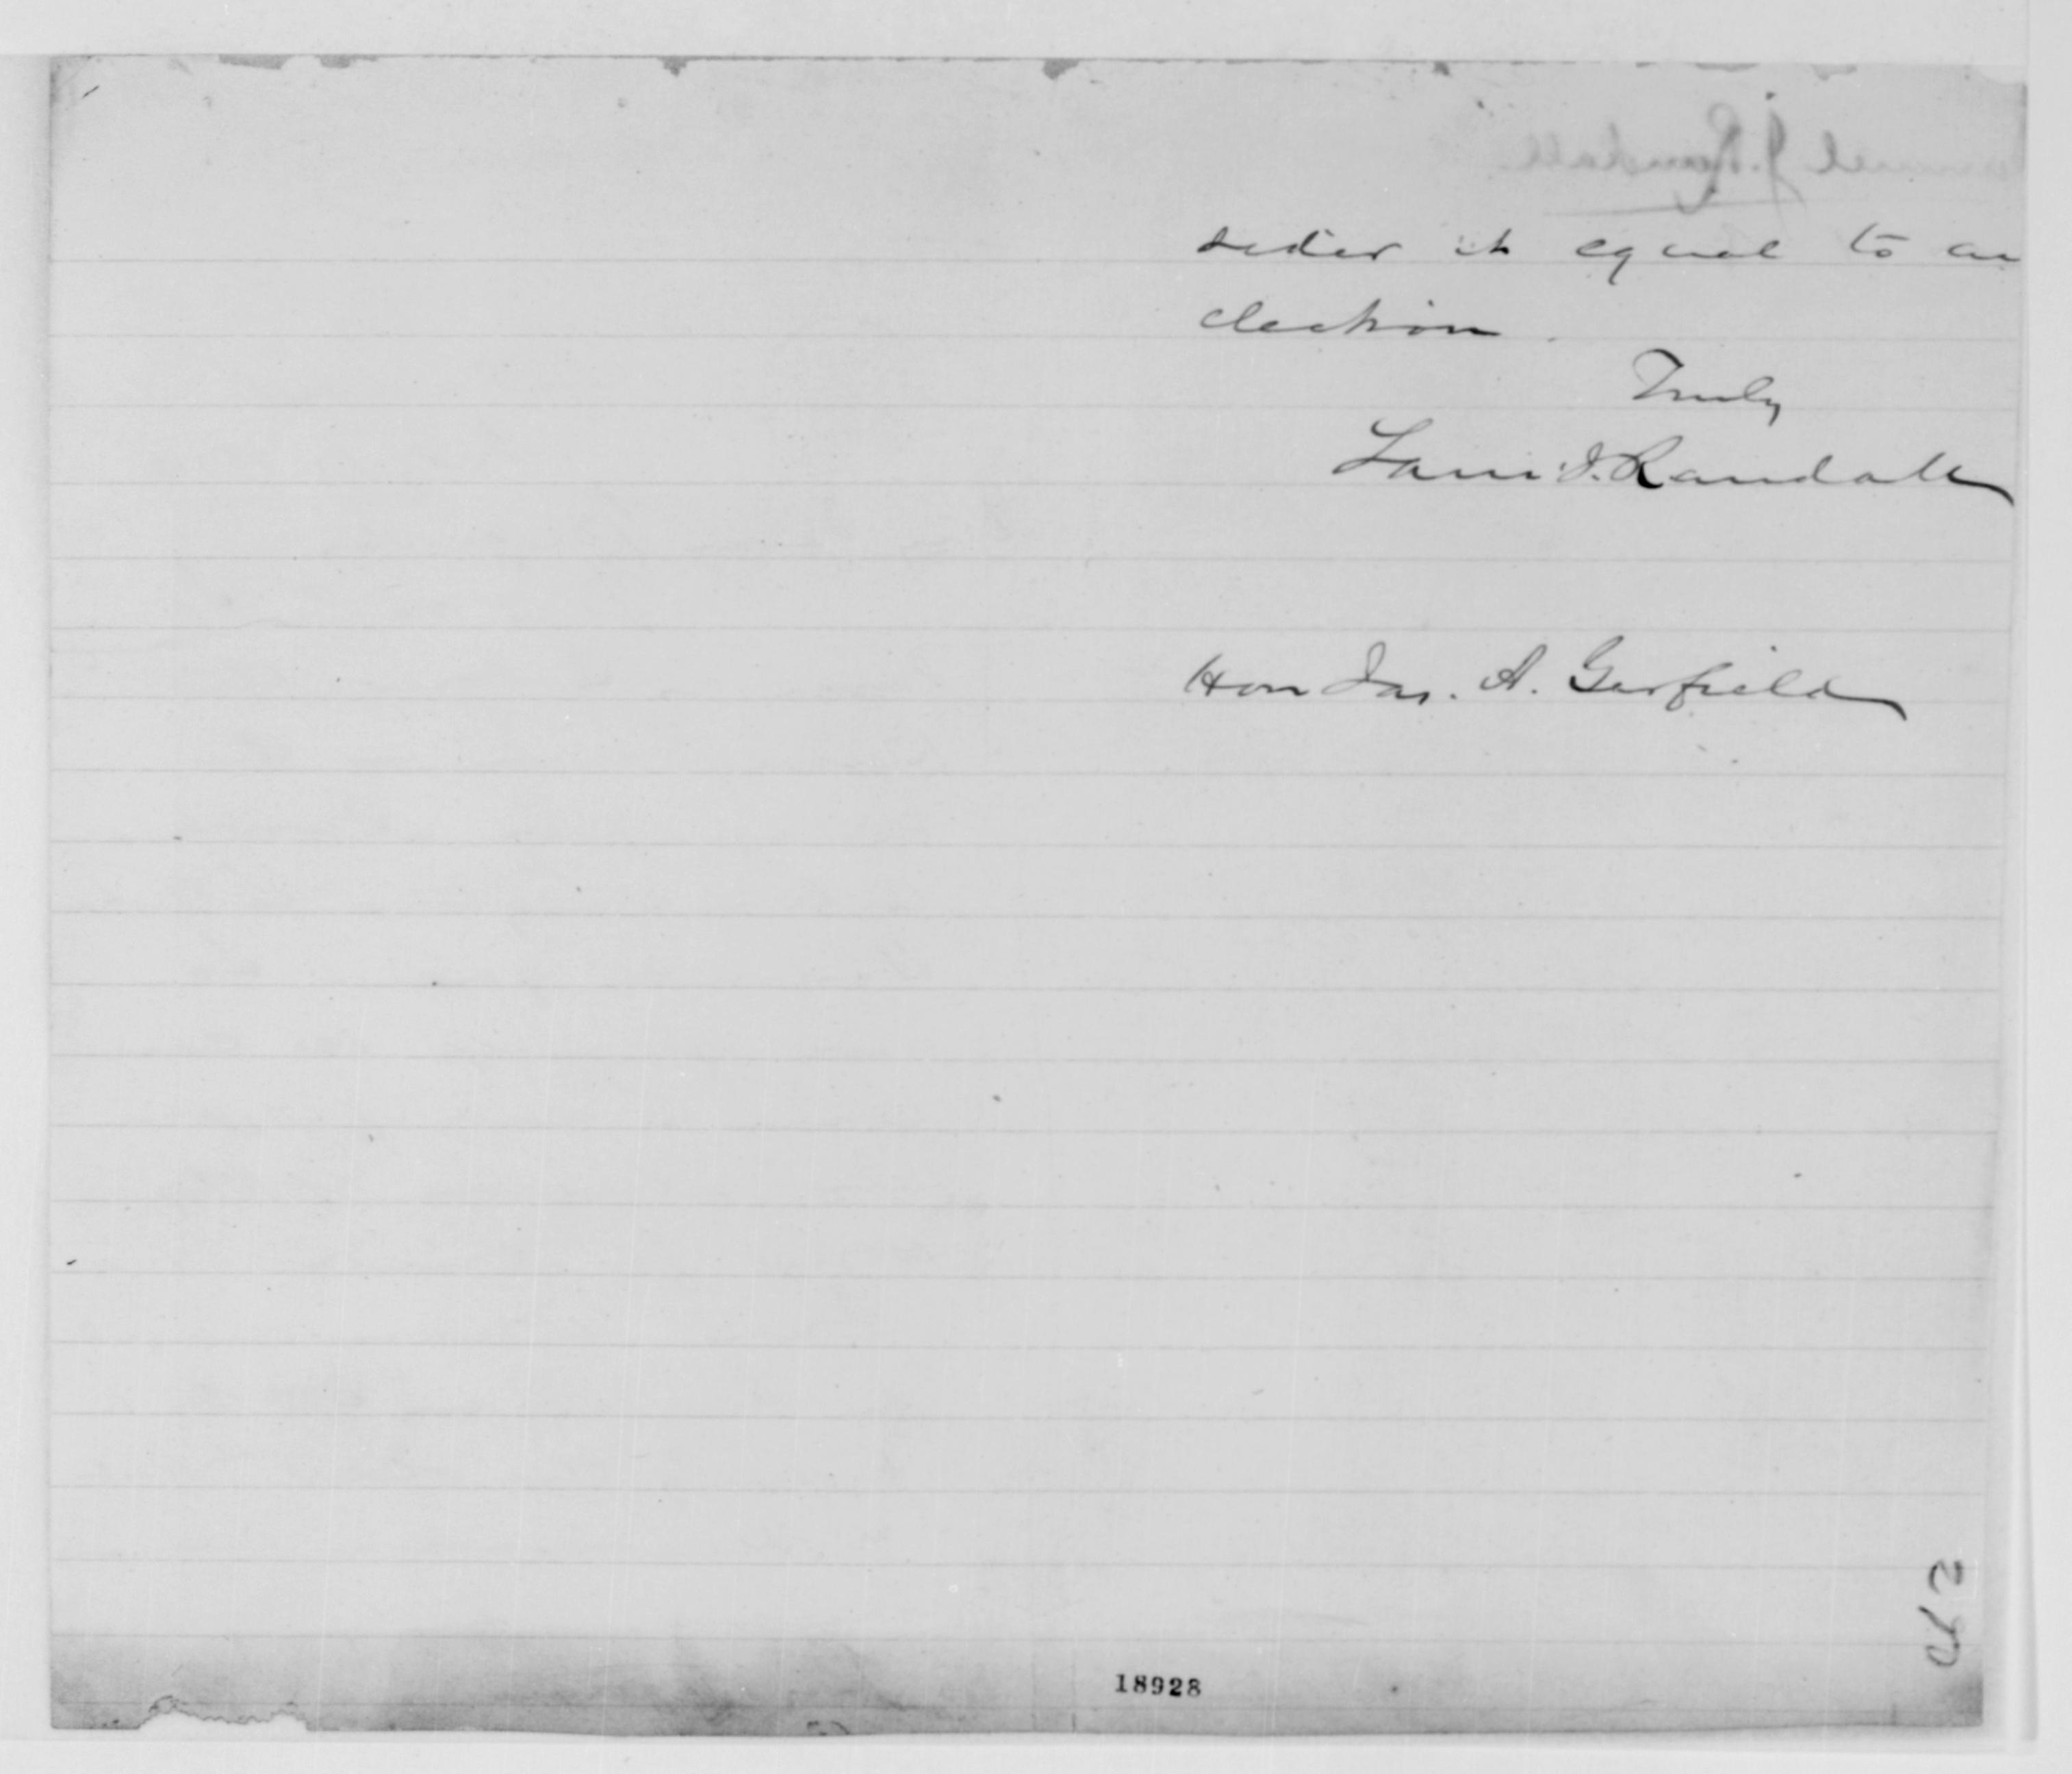 sider it equal to an
election.
Truly
Sam J. Randall
Hon Jas. A. Garfield
18928